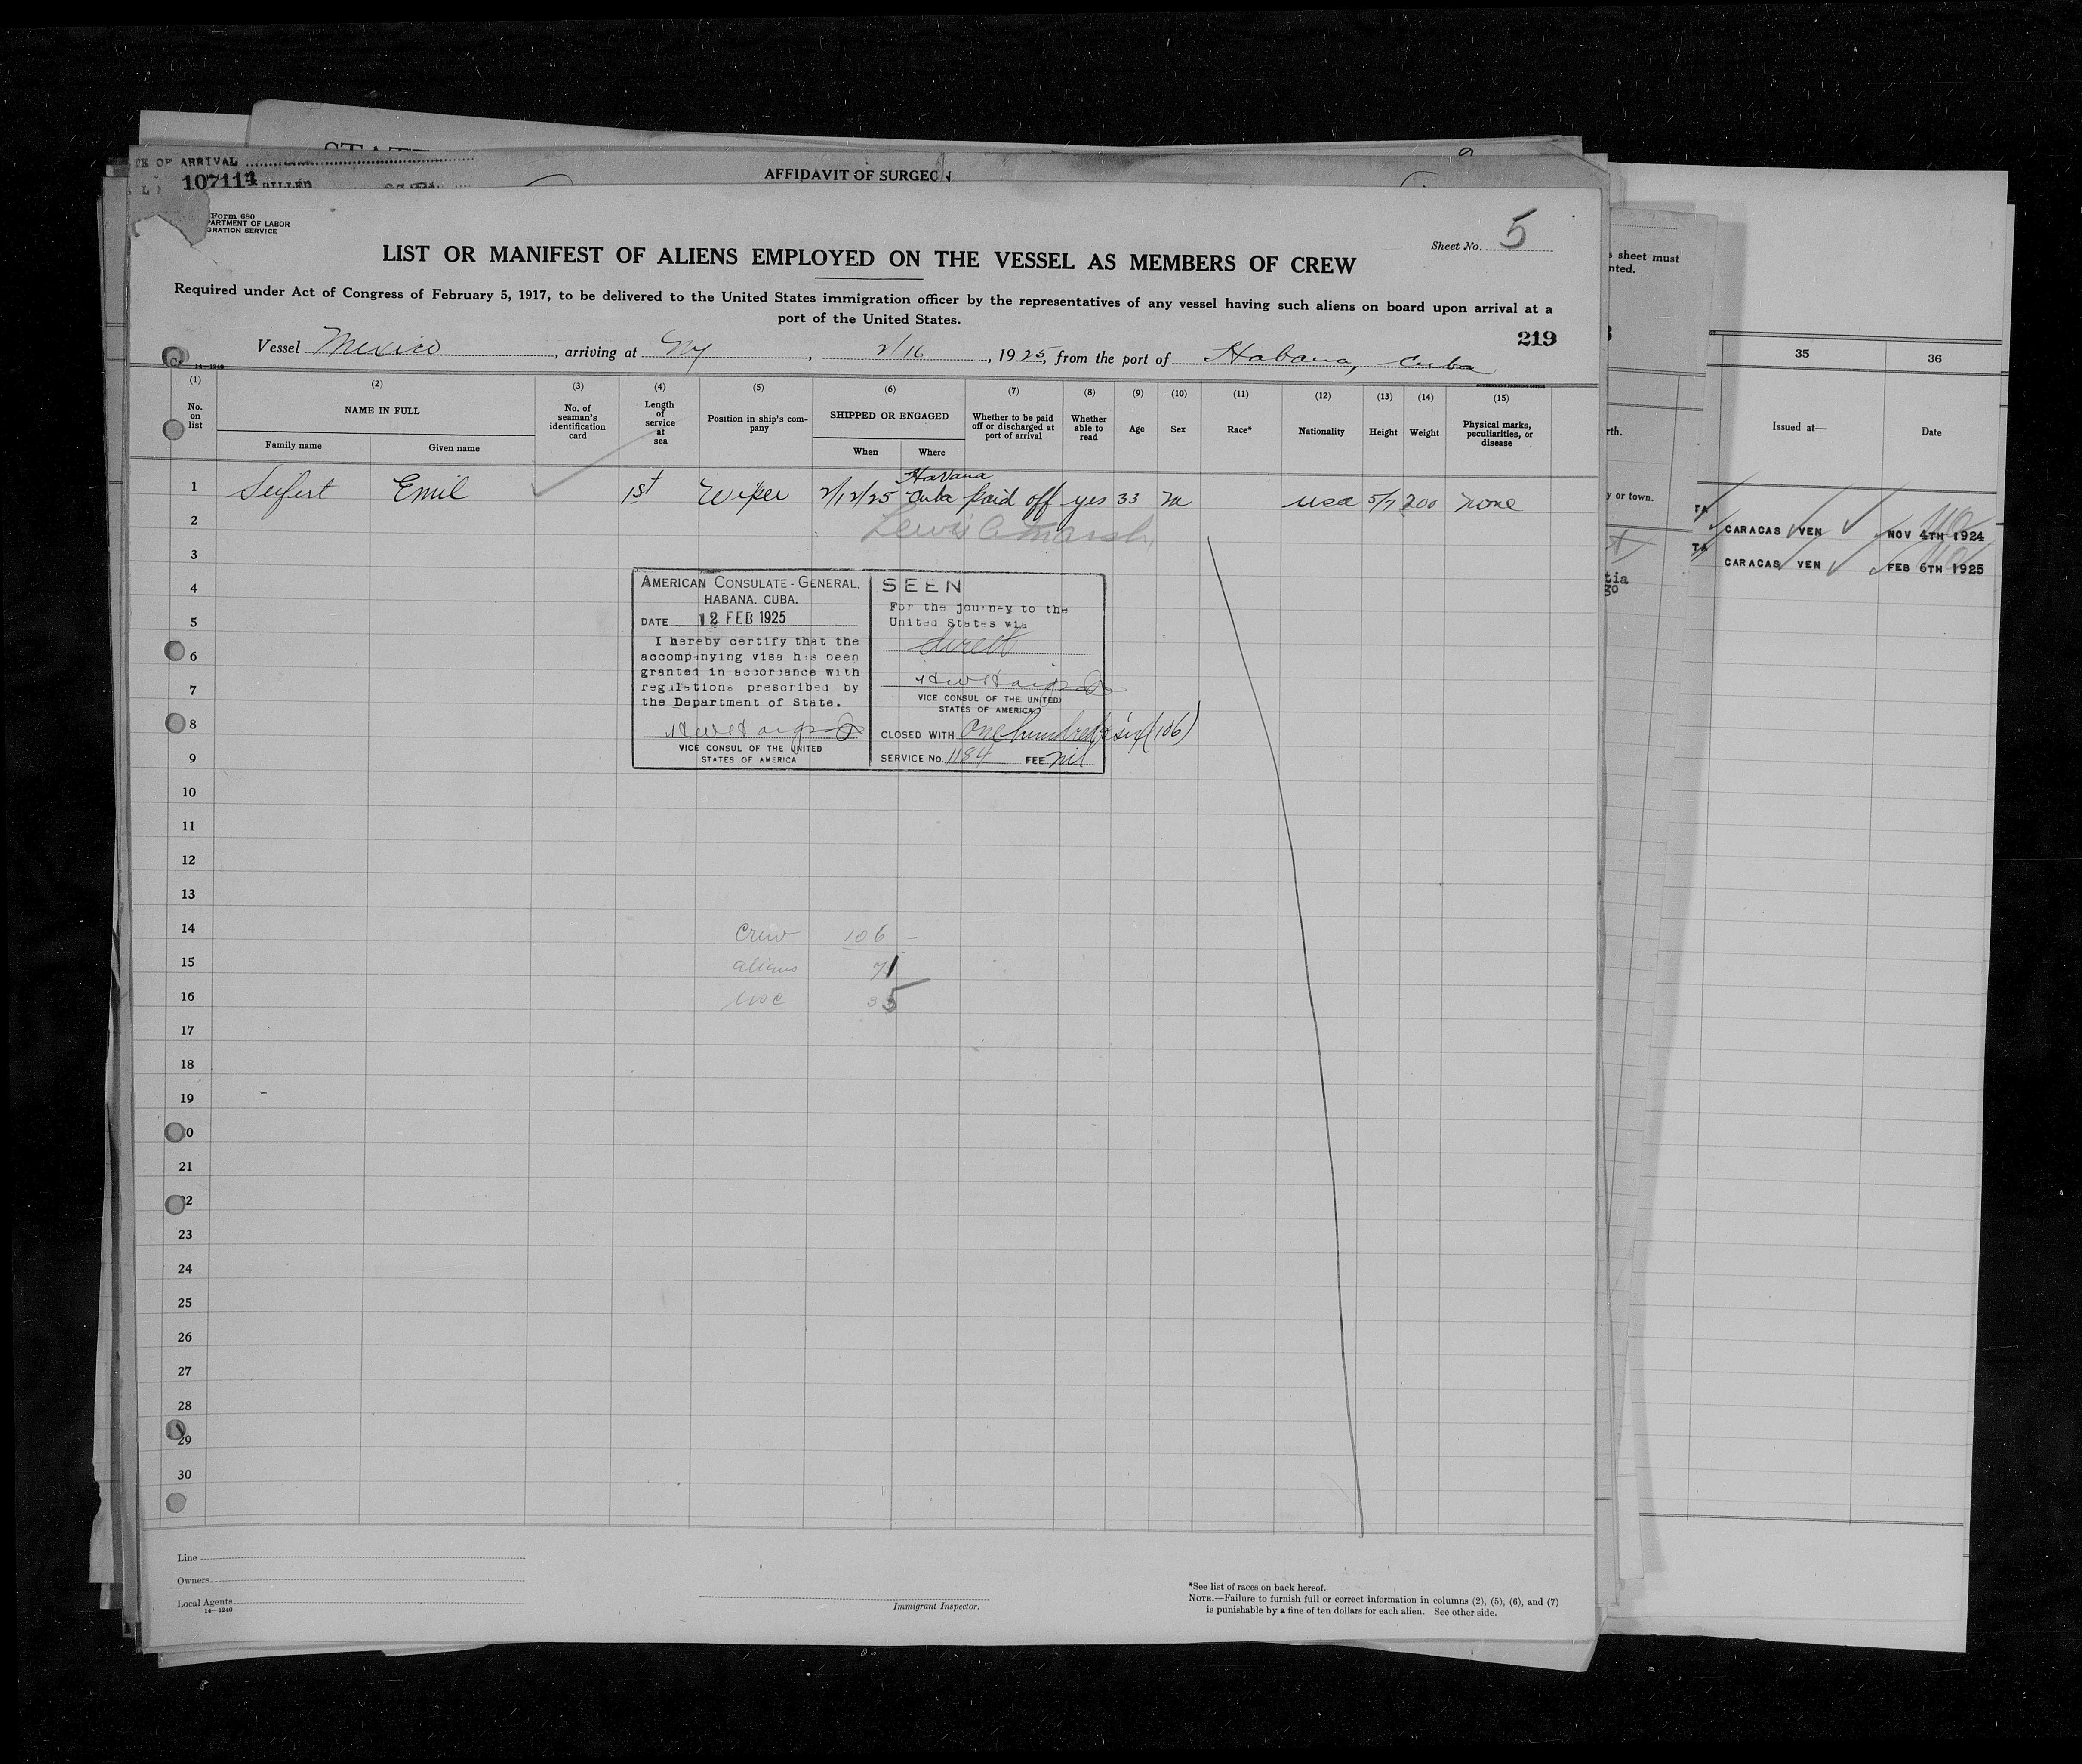 STATE
TE OF ARRIVAL
107114
AFFIDAVIT OF SURGEON
Form 680
PARTMENT OF LABOR
GRATION SERVICE
Sheet No. 5
LIST OR MANIFEST OF ALIENS EMPLOYED ON THE VESSEL AS MEMBERS OF CREW
Required under Act of Congress of February 5, 1917, to be delivered to the United States immigration officer by the representatives of any vessel having such aliens on board upon arrival at a
port of the United States.
219
Vessel Mexico, arriving at NY, 2/16, 1925, from the port of Habana, Cuba
14—1240
(1) (2) (3) (4) (5) (6) (7) (8) (9) (10) (11) (12) (13) (14) (15)
No. on list
NAME IN FULL
Family name
Given name
No. of seaman's identification card
Length of service at sea
Position in ship's company
SHIPPED OR ENGAGED
When
Where
Whether to be paid off or discharged at port of arrival
Whether able to read
Age
Sex
Race*
Nationality
Height
Weight
Physical marks, peculiarities, or disease
Havana
1 Seifert Emil 1st Wiper 2/12/25 Cuba paid off yes 33 m usa 5/7 200 none
2 Lewis C Marsh
3
4
5
6
7
8
9
10
11
12
13
14
15
16
17
18
19
20
21
22
23
24
25
26
27
28
29
30
AMERICAN CONSULATE-GENERAL.
HABANA. CUBA.
DATE 12 FEB 1925
I hereby certify that the
accompanying visa has been
granted in accordance with
regulations prescribed by
the Department of State.
VICE CONSUL OF THE UNITED
STATES OF AMERICA
SEEN
For the journey to the
United States via
direct
VICE CONSUL OF THE UNITED
STATES OF AMERICA
CLOSED WITH One hundred & six (106)
SERVICE No. 1184 FEE nil
Crew 106 —
aliens 71
usc 35
Line
Owners
Local Agents
14—1240
Immigrant Inspector.
*See list of races on back hereof.
NOTE.—Failure to furnish full or correct information in columns (2), (5), (6), and (7)
is punishable by a fine of ten dollars for each alien. See other side.
s sheet must
nted.
rth.
y or town.
tia
go
35 36
Issued at—
Date
TA CARACAS VEN NOV 4TH 1924
TA CARACAS VEN FEB 6TH 1925